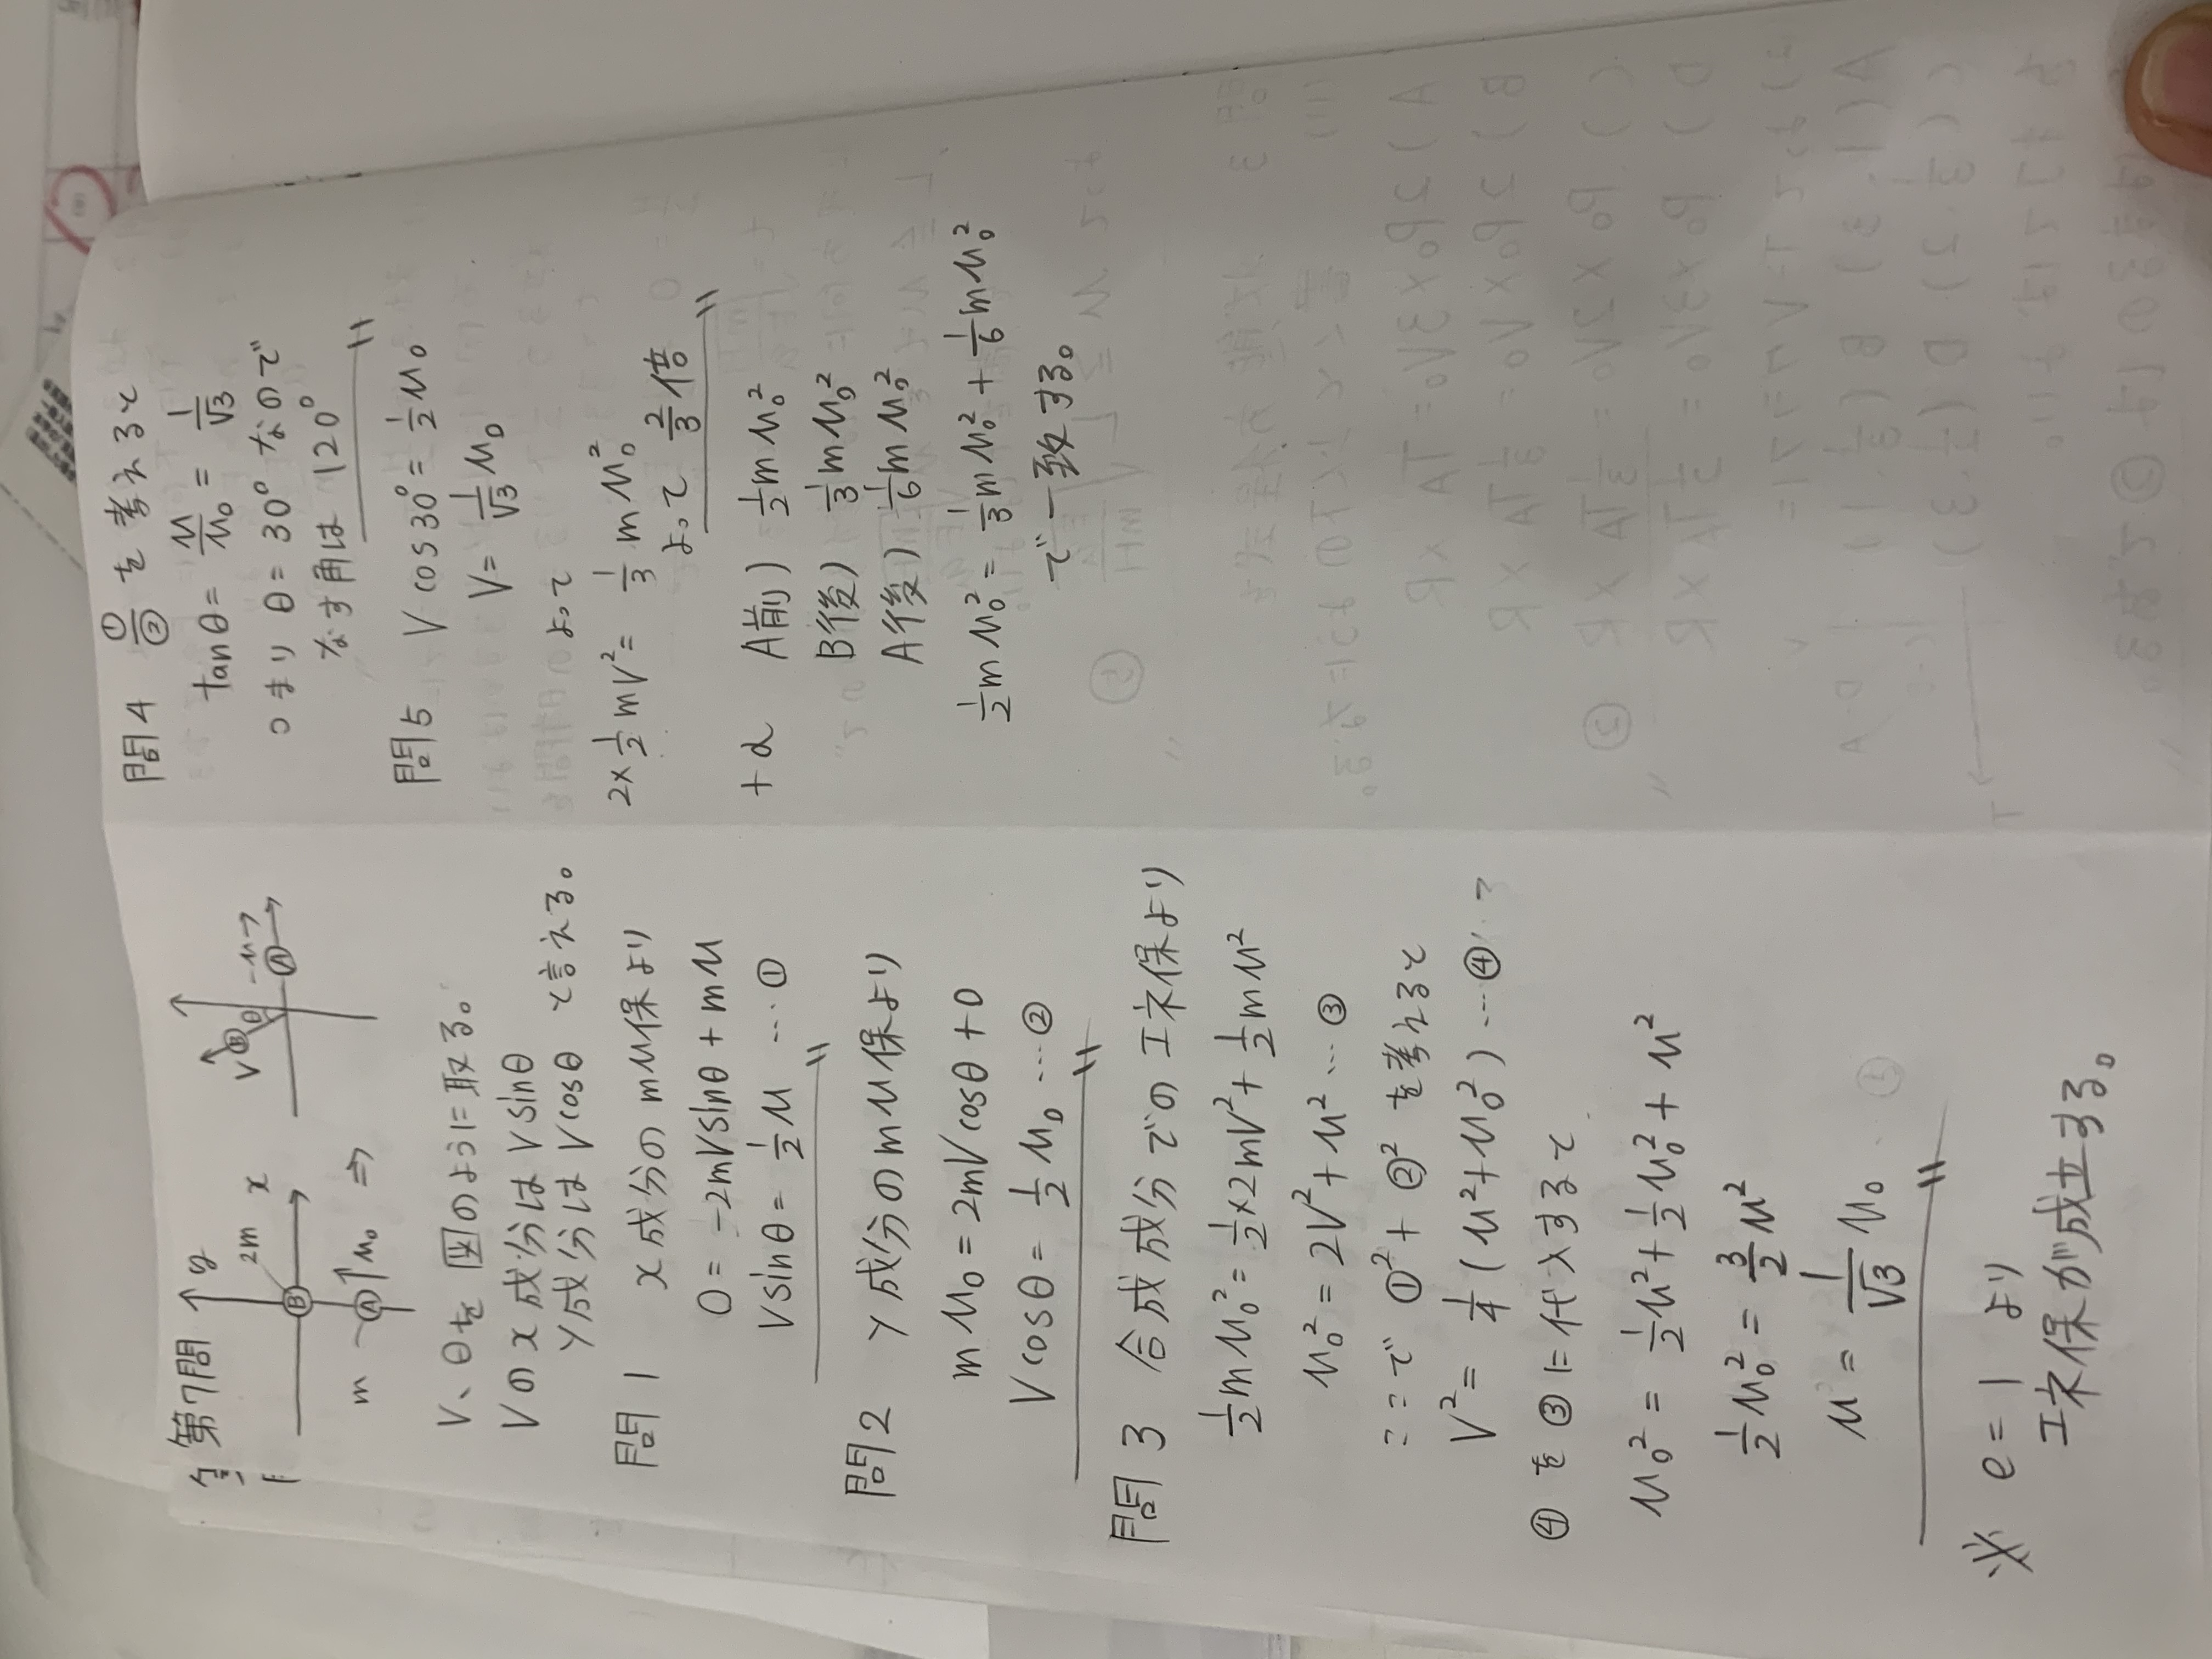 第7問
y
x
2m
B
A
m
u₀
⇒
V
θ
B
A
u
V、θを図のように取る。
Vのx成分はVsinθ
y成分はVcosθ と言える。
問1 x成分のmu保より
0=-2mVsinθ+mu
Vsinθ=1/2u …①
問2 y成分のmu保より
mu₀=2mVcosθ+0
Vcosθ=1/2u₀ …②
問3 合成成分でのエネ保より
1/2mu₀²=1/2×2mV²+1/2mu²
u₀²=2V²+u² …③
ここで ①²+②² を考えると
V²=1/4(u²+u₀²) …④
④を③に代入すると
u₀²=1/2u²+1/2u₀²+u²
1/2u₀²=3/2u²
u=1/√3u₀
※ e=1 より
エネ保が成立する。
問4 ①/②を考えると
tanθ=u/u₀=1/√3
つまり θ=30°なので
なす角は 120°
問5 Vcos30°=1/2u₀
V=1/√3u₀
よって
2×1/2mV²=1/3mu₀²
よって 2/3倍
+α A前) 1/2mu₀²
B後) 1/3mu₀²
A後) 1/6mu₀²
1/2mu₀²=1/3mu₀²+1/6mu₀²
で一致する。